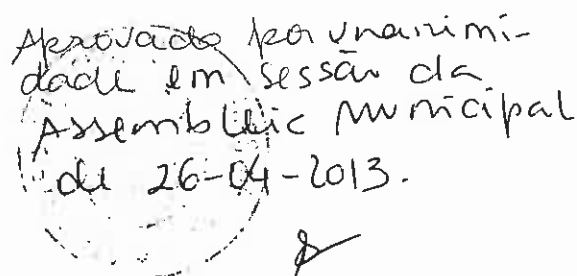 Aprovado por unanimi-
dade em sessão da
Assembleia Municipal
de 26-04-2013.